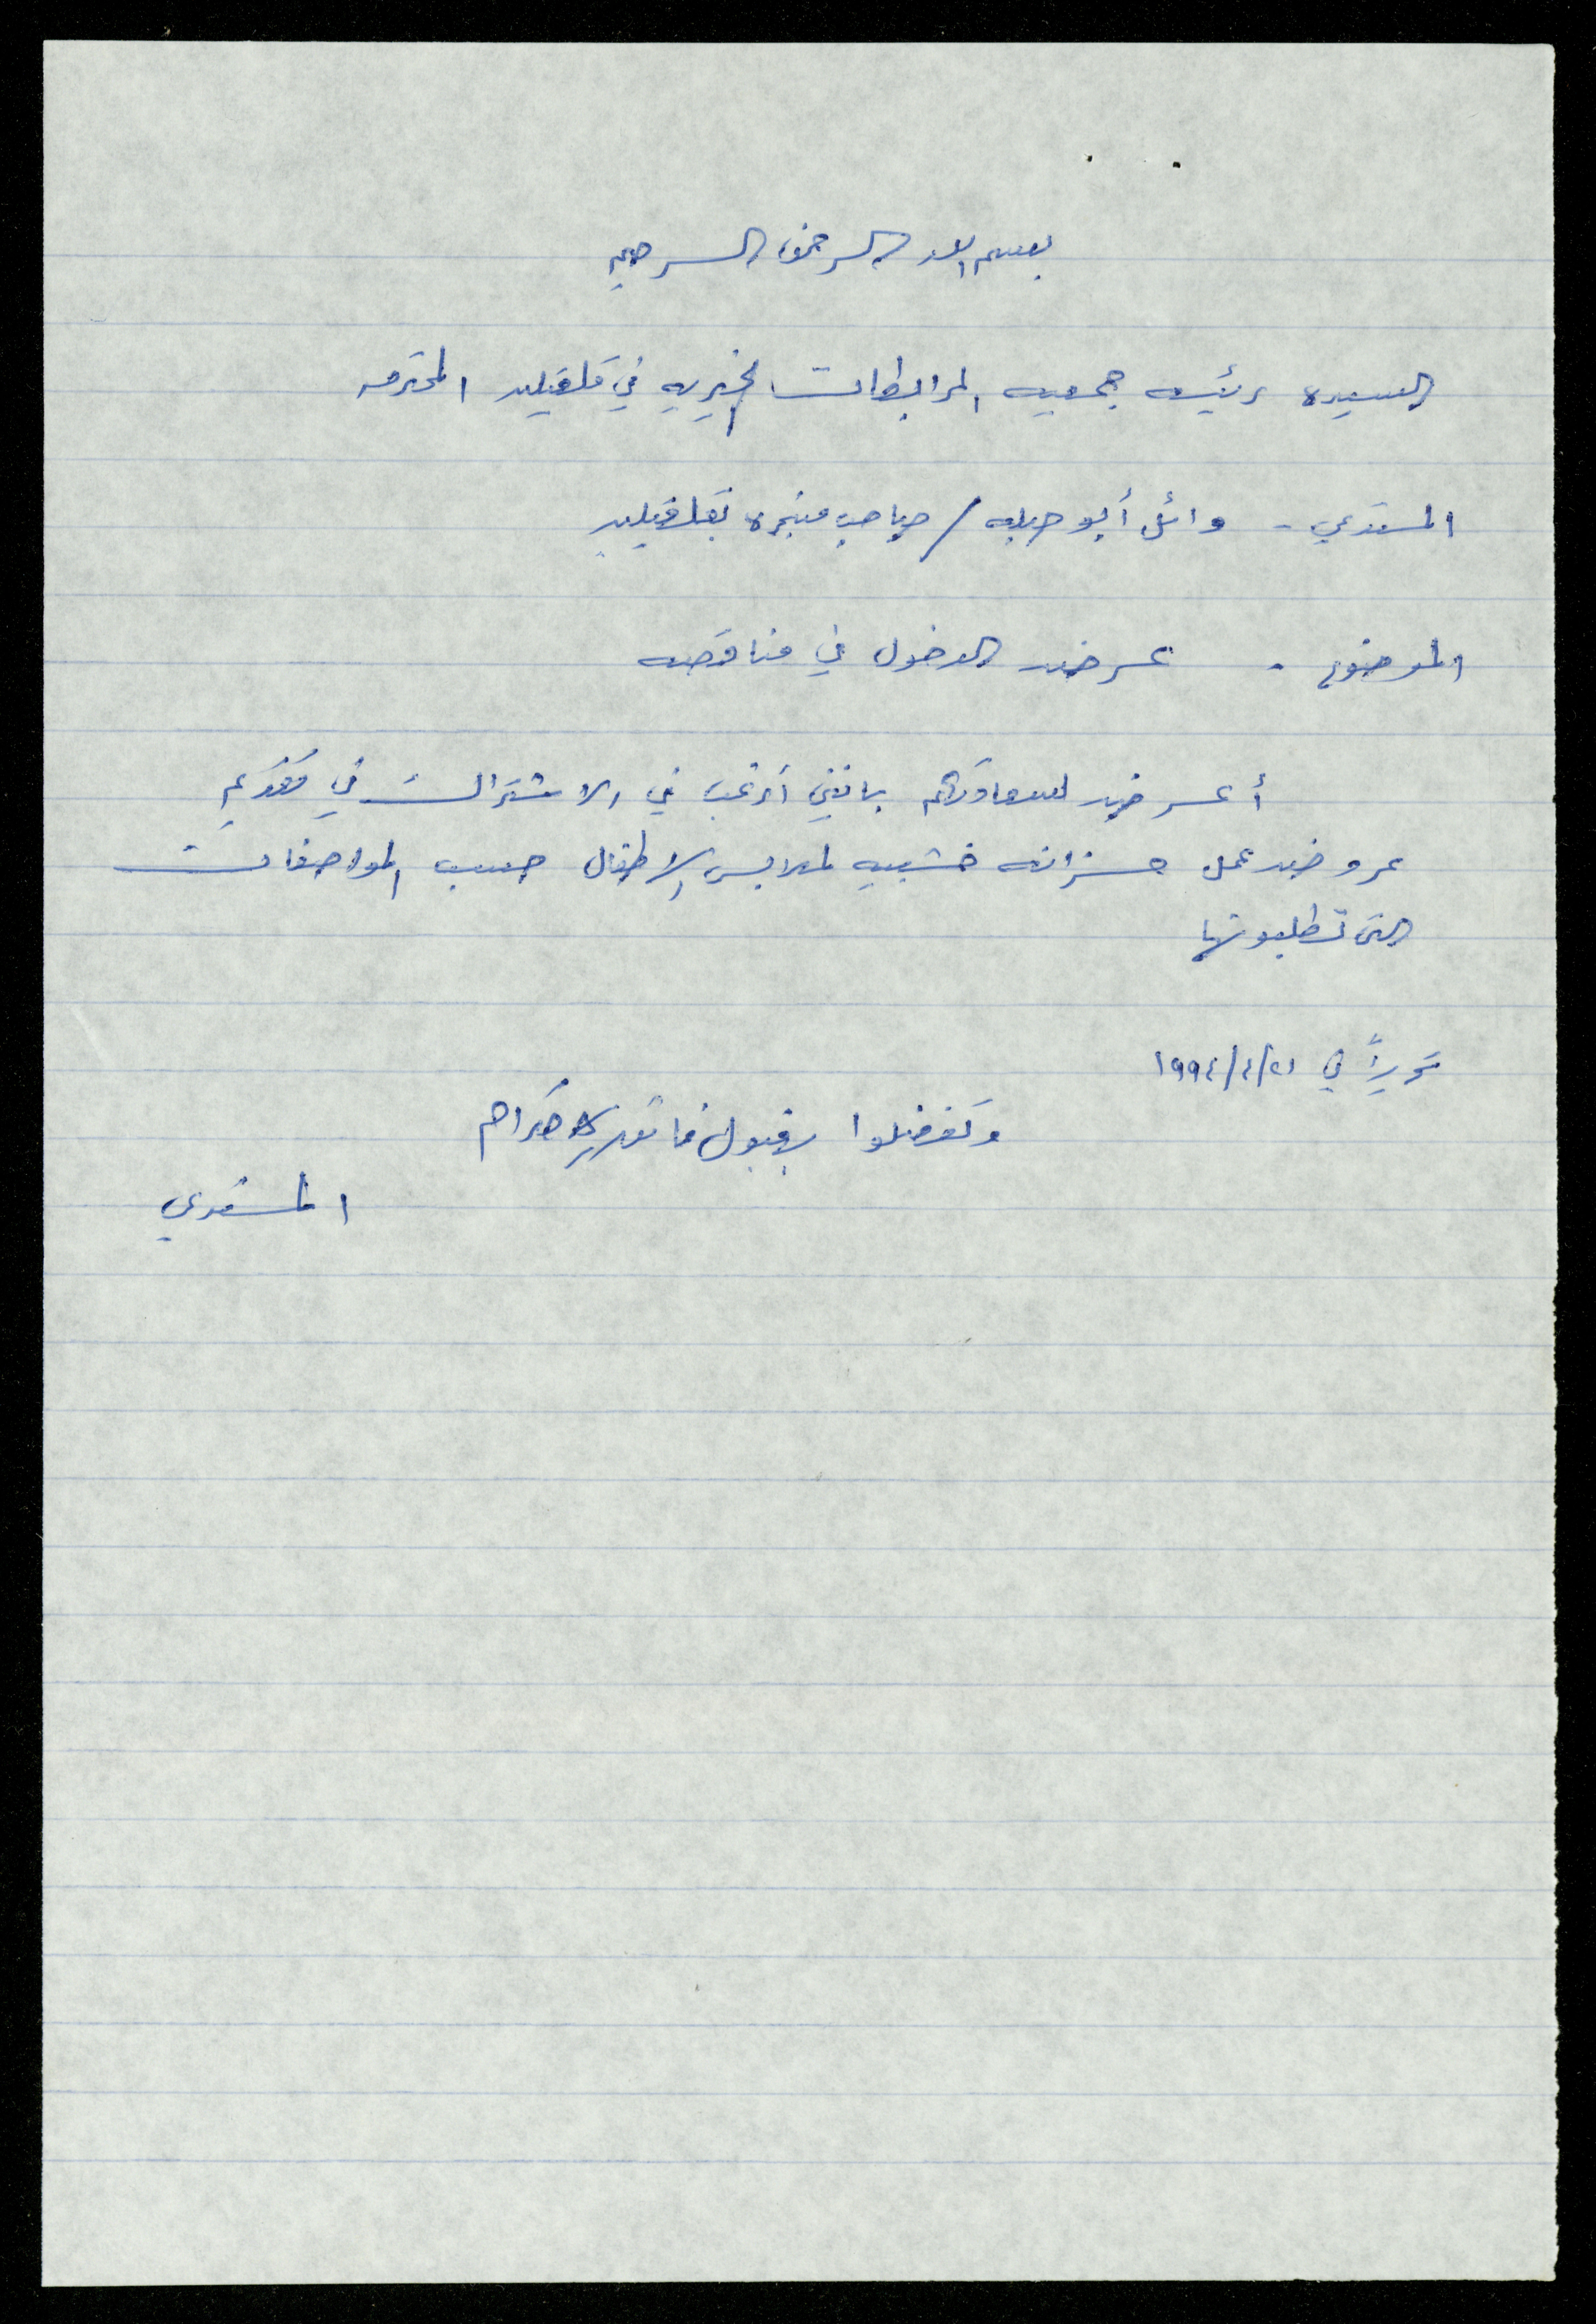 بسم الله الرحمن الرحيم
السيده رئيسه جمعيه المرابطات الخيريه في قلقيليه المحترمه
المستدعي - وائل أبو حبله / صاحب منجره بقلقيليه
الموضوع - عرض الدخول في مناقصه
أعرض لسعادتكم بانني أرغب في الاشتراك في تقديم
عروض عمل خزانه خشبيه لملابس الاطفال حسب المواصفات
التى تطلبونها
تحريراً في ٢١/٤/١٩٩٤
وتفضلوا بقبول فائق الاحترام
المستدعي